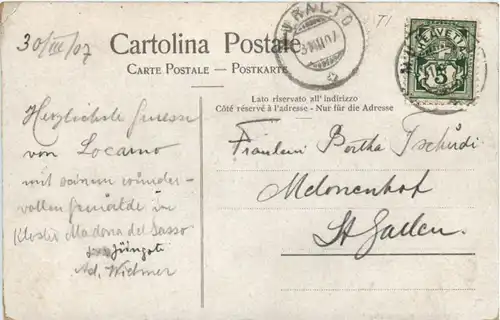 30/III/07
MURALTO
31.III.07
HELVETIA
5
Cartolina Postale
CARTE POSTALE — POSTKARTE
Lato riservato all' indirizzo
Côté réservé à l'adresse - Nur für die Adresse
Herzlichste Grüsse
von Locarno
mit seinem wunder-
vollen Gemälde im
Kloster Madona del Sasso
Ad. Widmer
Fräulein Bertha Tschudi
Melonenhof
St Gallen.